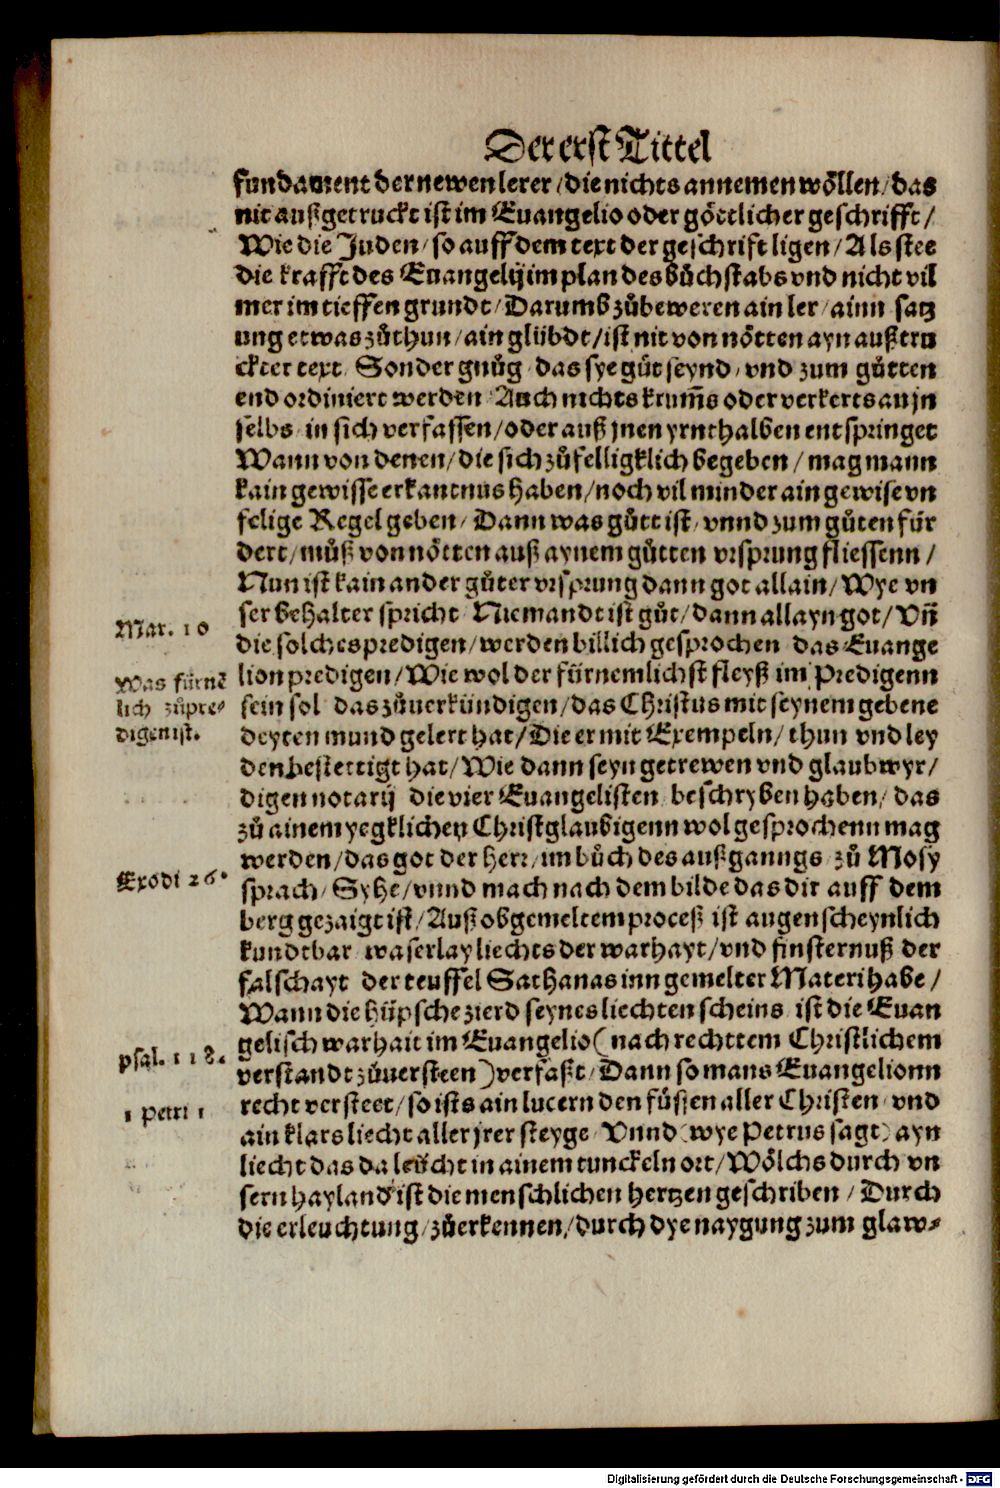 Der erst Tittel
fundament der newen lerer / die nichts annemen wöllen / das
nit außgetruckt ist im Euangelio oder göttlicher geschrifft /
Wie die Juden / so auff dem text der geschrift ligen / Als stee
die krafft des Euangelij im plan des bůchstabs vnd nicht vil
mer im tieffen grundt / Darumb zůbeweren ain ler / ainn satz
ung etwas zůthun / ain glübdt / ist nit von nötten ayn außtru
ckter text / Sonder gnůg / das sye gůt seynd / vnd zum gůtten
end ordiniert werden / Auch nichts krum̃s oder verkerts an jn
selbs / in sich verfassen / oder auß jnen yrnthalben entspringet
Wann von denen / die sich zůfelligklich begeben / mag mann
kain gewisse erkantnus haben / noch vil minder ain gewise vn
felige Regel geben / Dann was gůtt ist / vnnd zum gůten für
dert / můß von nötten auß aynem gůtten vrsprung fliessenn /
Nun ist kain ander gůter vrsprung dann got allain / Wye vn
ser behalter spricht / Niemandt ist gůt / dann allayn got / Vñ
Mar. 10
die solches predigen / werden billich gesprochen das Euange
lion predigen / Wie wol der fürnemlichst fleyß im Predigenn
Was fürnẽ
lich zůpre-
digen ist.
sein sol / das zůuerkündigen / das Christus mit seynem gebene
deyten mund gelert hat / Die er mit Exempeln / thun vnd ley
den bestettigt hat / Wie dann seyn getrewen vnd glaubwyr /
digen notarij die vier Euangelisten beschryben haben / das
zů ainem yegklichen Christglaubigenn wol gesprochenn mag
werden / das got der herr / im bůch des außganngs zů Mosy
Exodi 26.
sprach / Syhe / vnnd mach nach dem bilde das dir auff dem
berg gezaigt ist / Auß obgemeltem proceß ist augenscheynlich
kundtbar waserlay liechts der warhayt / vnd finsternuß der
falschayt der teuffel Sathanas inn gemelter Materi habe /
Wann die hüpsche zierd seynes liechten scheins ist die Euan
gelisch warhait im Euangelio ( nach rechttem Christlichem
psal. 118.
verstandt zůuersteen ) verfaßt / Dann so mans Euangelionn
recht versteet / so ists ain lucern den füssen aller Christen / vnd
1 Petri 1
ain klars liecht aller jrer steyge / Vnnd (wye Petrus sagt) ayn
liecht das da leücht in ainem tunckeln ort / Wölchs durch vn
sern hayland ist die menschlichen hertzen geschriben / Durch
die erleuchtung / zůerkennen / durch dye naygung zum glaw-
Digitalisierung gefördert durch die Deutsche Forschungsgemeinschaft - DFG